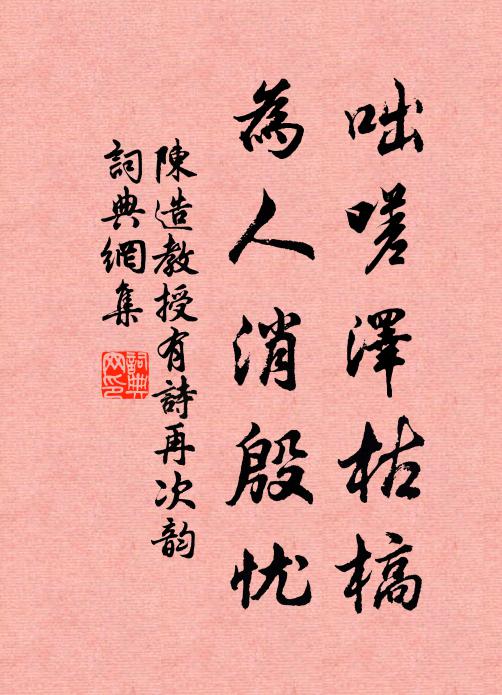 咄嗟澤枯槁
為人消殷忧
陳造教授有詩再次韵
詞典網集
詞典網印